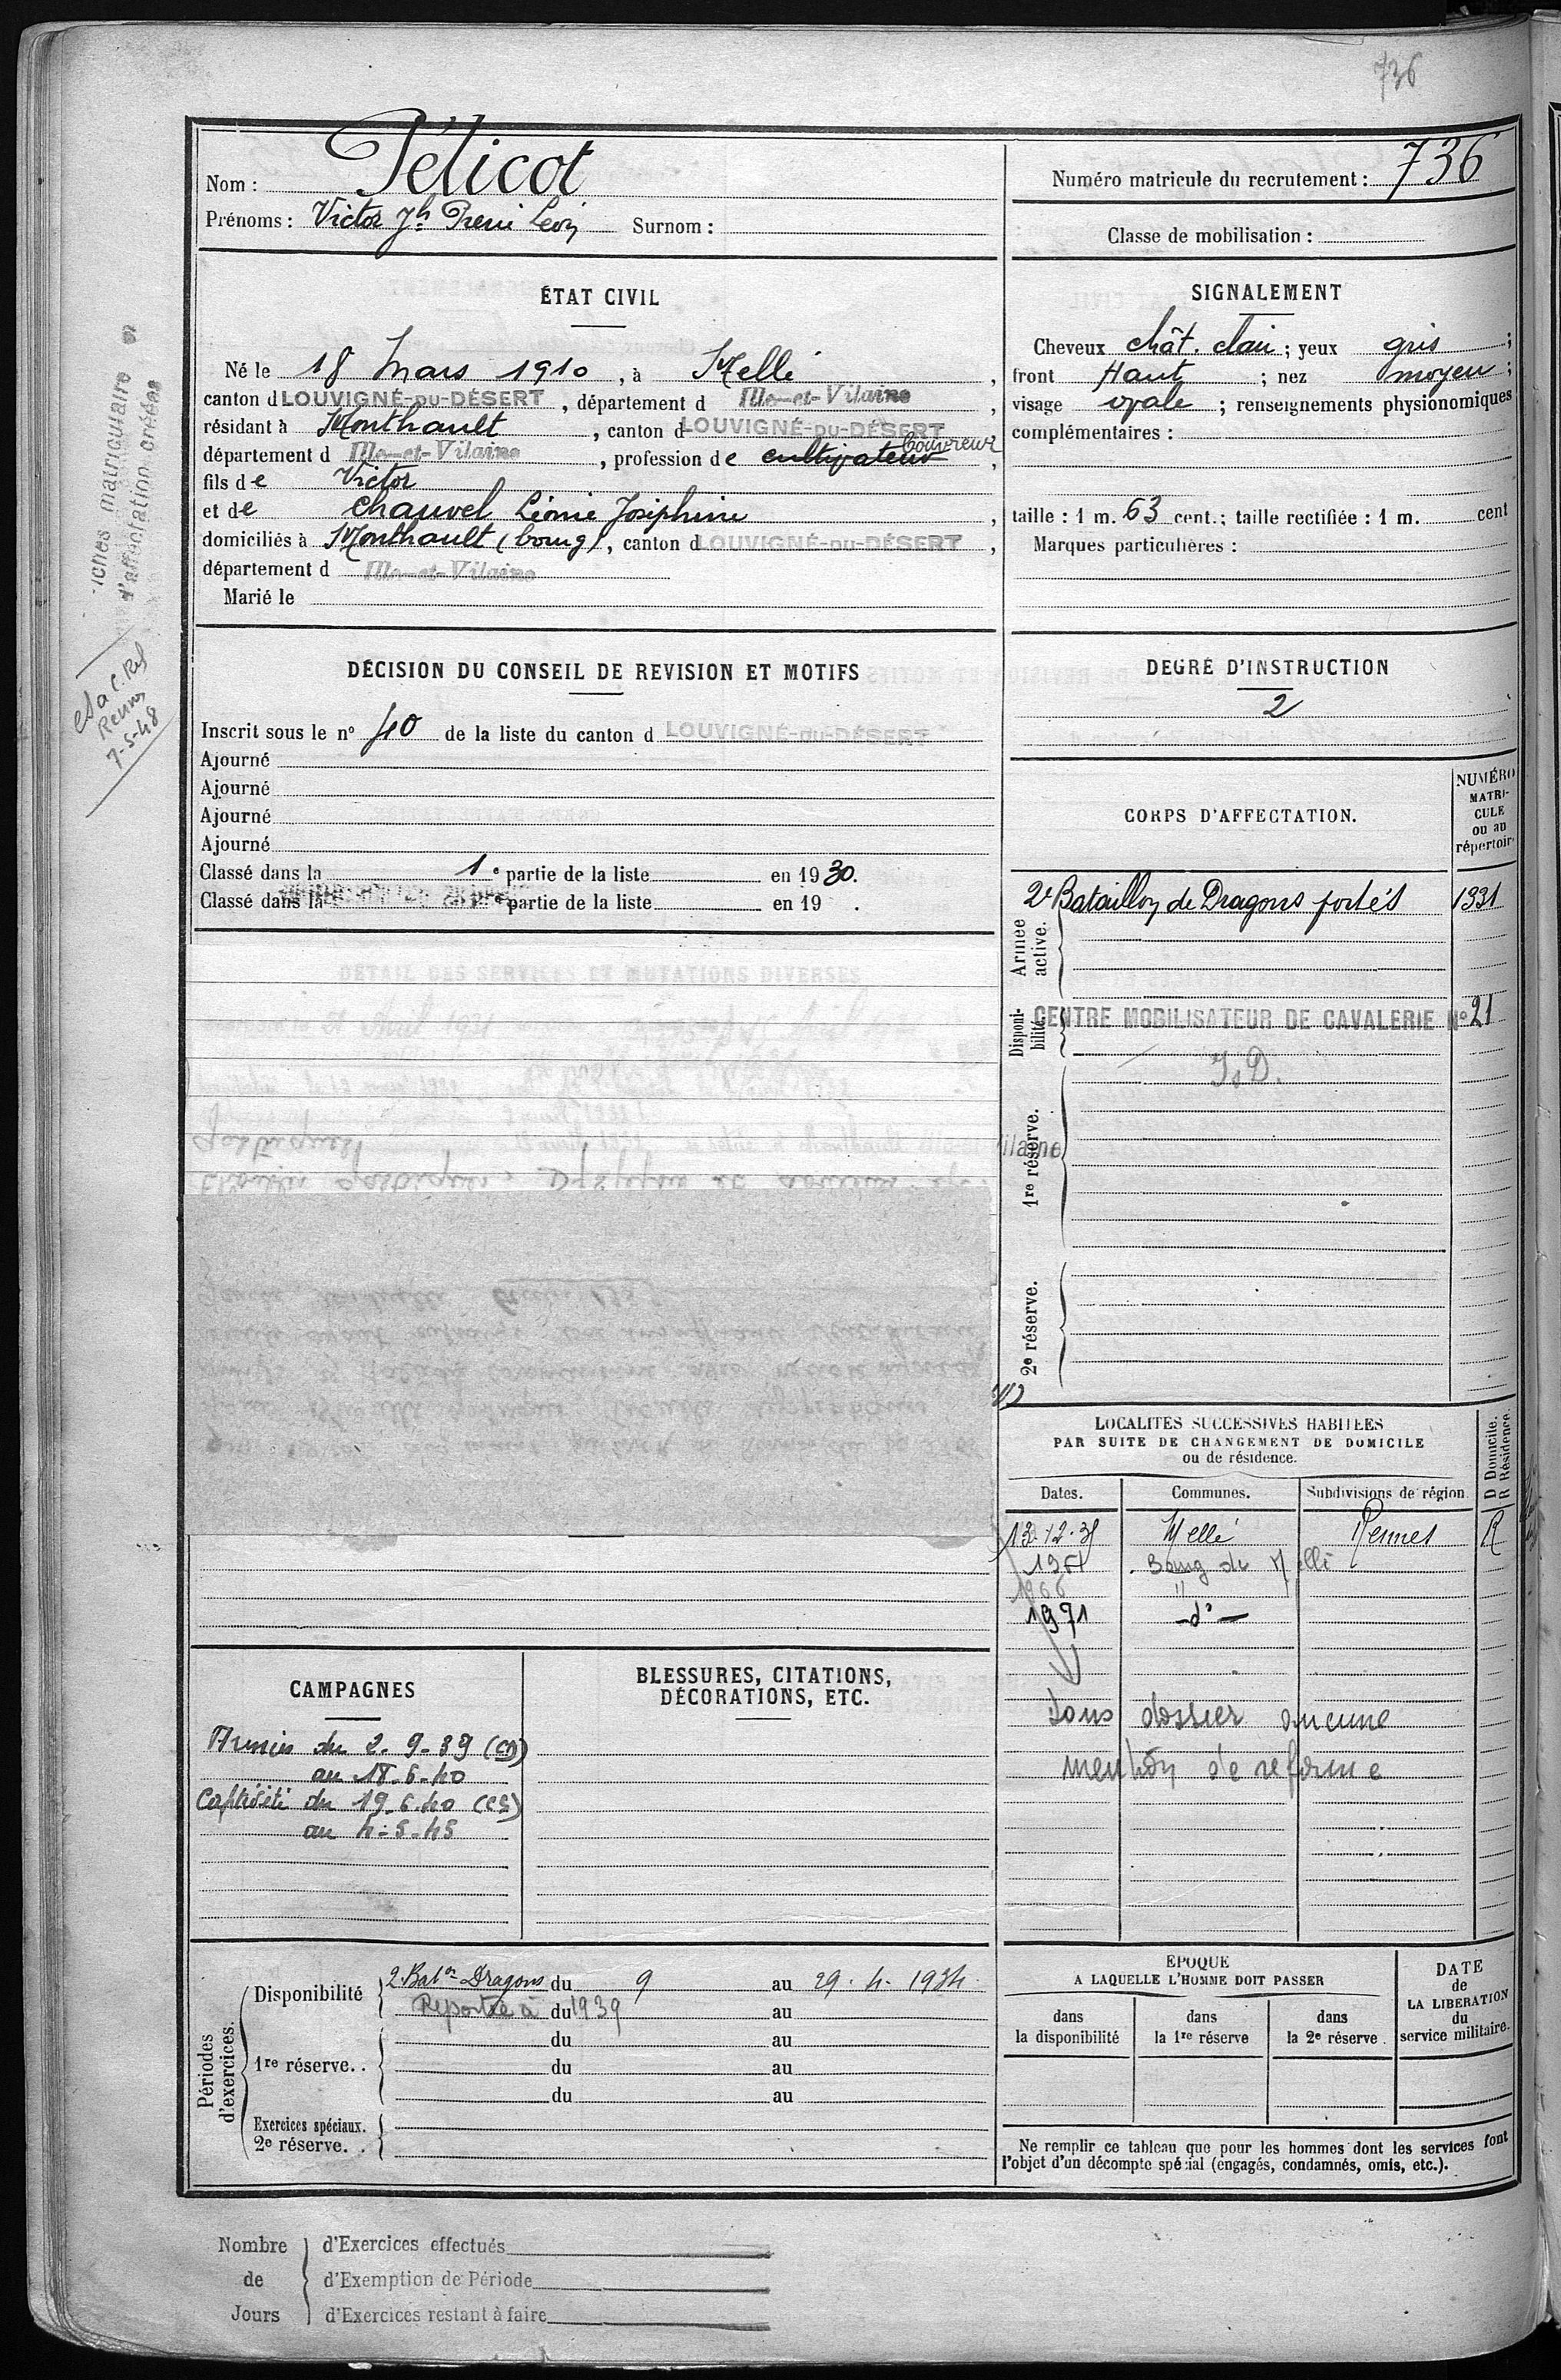 736
Nom : Pélicot
Prénoms : Victor Jh René Léon Surnom :
Numéro matricule du recrutement : 736
Classe de mobilisation :
ÉTAT CIVIL
Né le 18 Mars 1910, à Mellé,
canton d LOUVIGNÉ-DU-DÉSERT, département d Ille-et-Vilaine,
résidant à Monthault, canton d LOUVIGNÉ-DU-DÉSERT
département d Ille-et-Vilaine, profession de cultivateur Couvreur,
fils de Victor
et de Chauvel Léonie Joséphine,
domiciliés à Monthault (bourg), canton d LOUVIGNÉ-DU-DÉSERT,
département d Ille-et-Vilaine
Marié le
SIGNALEMENT
Cheveux chât. clair ; yeux gris ;
front Haut ; nez moyen ;
visage ovale ; renseignements physionomiques
complémentaires :
taille : 1 m. 63 cent. ; taille rectifiée : 1 m. cent
Marques particulières :
fiches matriculaire
d'affectation créées
Rennes
7-5-48
DÉCISION DU CONSEIL DE REVISION ET MOTIFS
Inscrit sous le n° 40 de la liste du canton d LOUVIGNÉ-DU-DÉSERT
Ajourné
Ajourné
Ajourné
Ajourné
Classé dans la 1e partie de la liste en 1930.
Classé dans la partie de la liste en 19 .
DEGRÉ D'INSTRUCTION
2
CORPS D'AFFECTATION.
NUMÉRO
MATRI-
CULE
ou au
répertoire
Armée active.
2e Bataillon de Dragons portés 1331
Disponi-bilité.
CENTRE MOBILISATEUR DE CAVALERIE N° 21
1re réserve.
2e réserve.
LOCALITÉS SUCCESSIVES HABITÉES
PAR SUITE DE CHANGEMENT DE DOMICILE
ou de résidence.
Dates. Communes. Subdivisions de région. D Domicile. R Résidence.
13-12-35 Mellé Rennes R
Bourg de Mellé
1966 "
1971 -d°-
sous dossier aucune
mention de reforme
CAMPAGNES
Armées du 2-9-39 (CD)
au 18-6-40
Captivité du 19-6-40 (CS)
au 4-5-45
BLESSURES, CITATIONS,
DÉCORATIONS, ETC.
Périodes d'exercices.
Disponibilité 2 Baton Dragons du 9 au 29-4-1934
Reportée à du 1939 au
1re réserve. . du au
du au
du au
Exercices spéciaux.
2e réserve. .
ÉPOQUE
A LAQUELLE L'HOMME DOIT PASSER
dans
la disponibilité
dans
la 1re réserve
dans
la 2e réserve.
DATE
de
LA LIBÉRATION
du
service militaire.
Ne remplir ce tableau que pour les hommes dont les services font
l'objet d'un décompte spécial (engagés, condamnés, omis, etc.).
Nombre de Jours
d'Exercices effectués
d'Exemption de Période
d'Exercices restant à faire